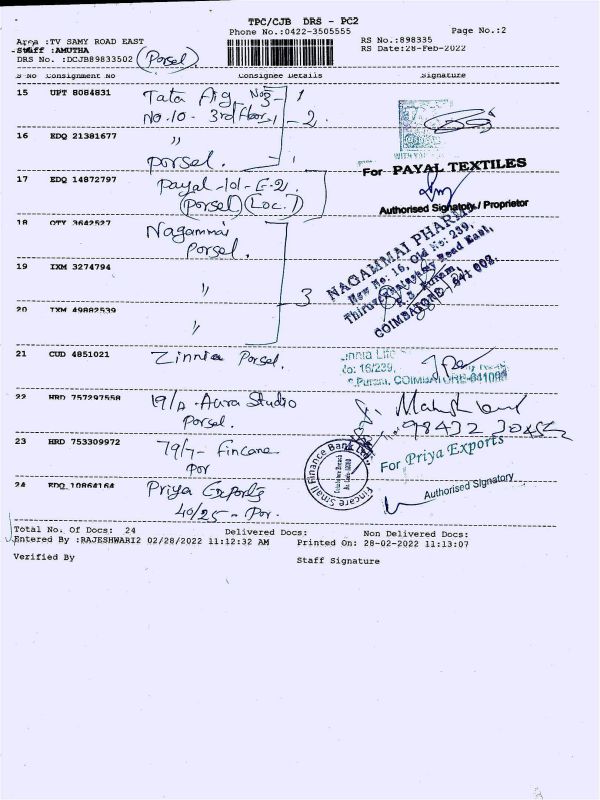 TPC/CJB DRS - PC2
Phone No.:0422-3505555
Page No.:2
Area :TV SAMY ROAD EAST
RS No.:898335
Staff :AMUTHA
RS Date:28-Feb-2022
DRS No. :DCJB89833502 (Porsel)
S No Consignment No Consignee Details Signature
15 UPT 8084831 Tata Aig No 3- 1
No.10 - 3rd floor-1 - 2.
16 EDQ 21381677 "
porsel.
WITH YOU
For PAYAL TEXTILES
17 EDQ 14872797 Payal-101-E-2.
(Porsel) (Loc.T)
Authorised Signatory / Proprietor
18 OTY 3642527 Nagammai
Porsel.
NAGAMMAI PHARMA
New No: 16, Old No: 239,
Road East,
R.S. Puram,
COIMBATORE - 641 002.
19 IXM 3274794 "
3
20 IXM 49882539 "
21 CUD 4851021 Zinnia Porsel.
No: 16/239,
R.S. Puram, COIMBATORE-641002
22 HRD 757297558 19/A - Aura Studio
Porsel.
98432
23 HRD 753309972 79/7- Fincare
Por
Fincare Small Finance Bank Ltd.
For Priya Exports
Authorised Signatory
24 EDQ 10864164 Priya Exports
40/25 - Por.
Total No. Of Docs: 24 Delivered Docs: Non Delivered Docs:
Entered By :RAJESHWARI2 02/28/2022 11:12:32 AM Printed On: 28-02-2022 11:13:07
Verified By Staff Signature